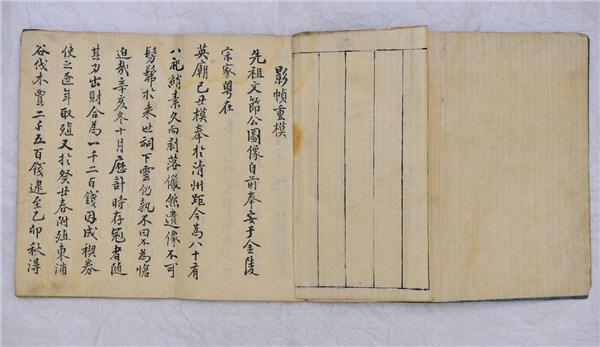 影幀重模
先祖文節公圖像自前奉安于金陵
宗家粤在
英廟己丑模奉於清州距今為八十有
八祀綃素久而剥落儼然遺像不可
髣髴於来世祠下雲仍孰不曰不為愴
迫哉辛亥冬十月厯計時存冠者随
其力出財合為一千二百錢因成稧券
使之逐年取殖又於癸丑春附殖東浦
谷伐木賈二千五百錢逮至乙卯秋得